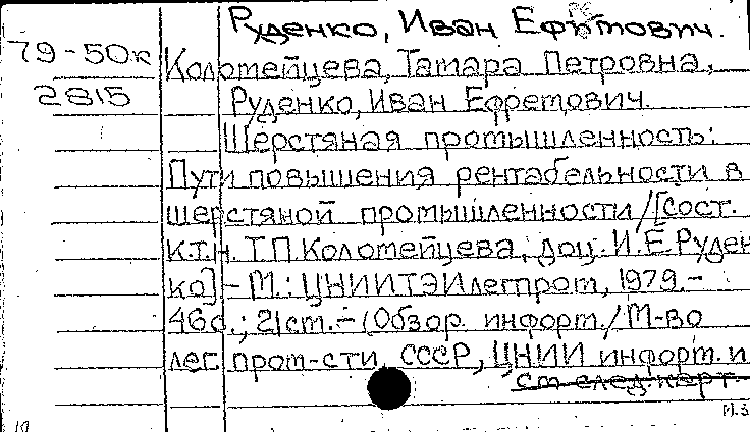 Руденко, Иван Ефремович.
79-50к
Колотейцева, Тамара Петровна,
2815
Руденко, Иван Ефремович.
Шерстяная промышленность:
Пути повышения рентабельности в
шерстяной промышленности/[Сост.
к.т.н. Т.П. Колотейцева, доц. И.Е. Руден
ко] - М.: ЦНИИТЭИлегпром, 1979.-
46с.; 21см.- (Обзор. информ./М-во
лег. пром-сти СССР, ЦНИИ информ. и
см след. карт.